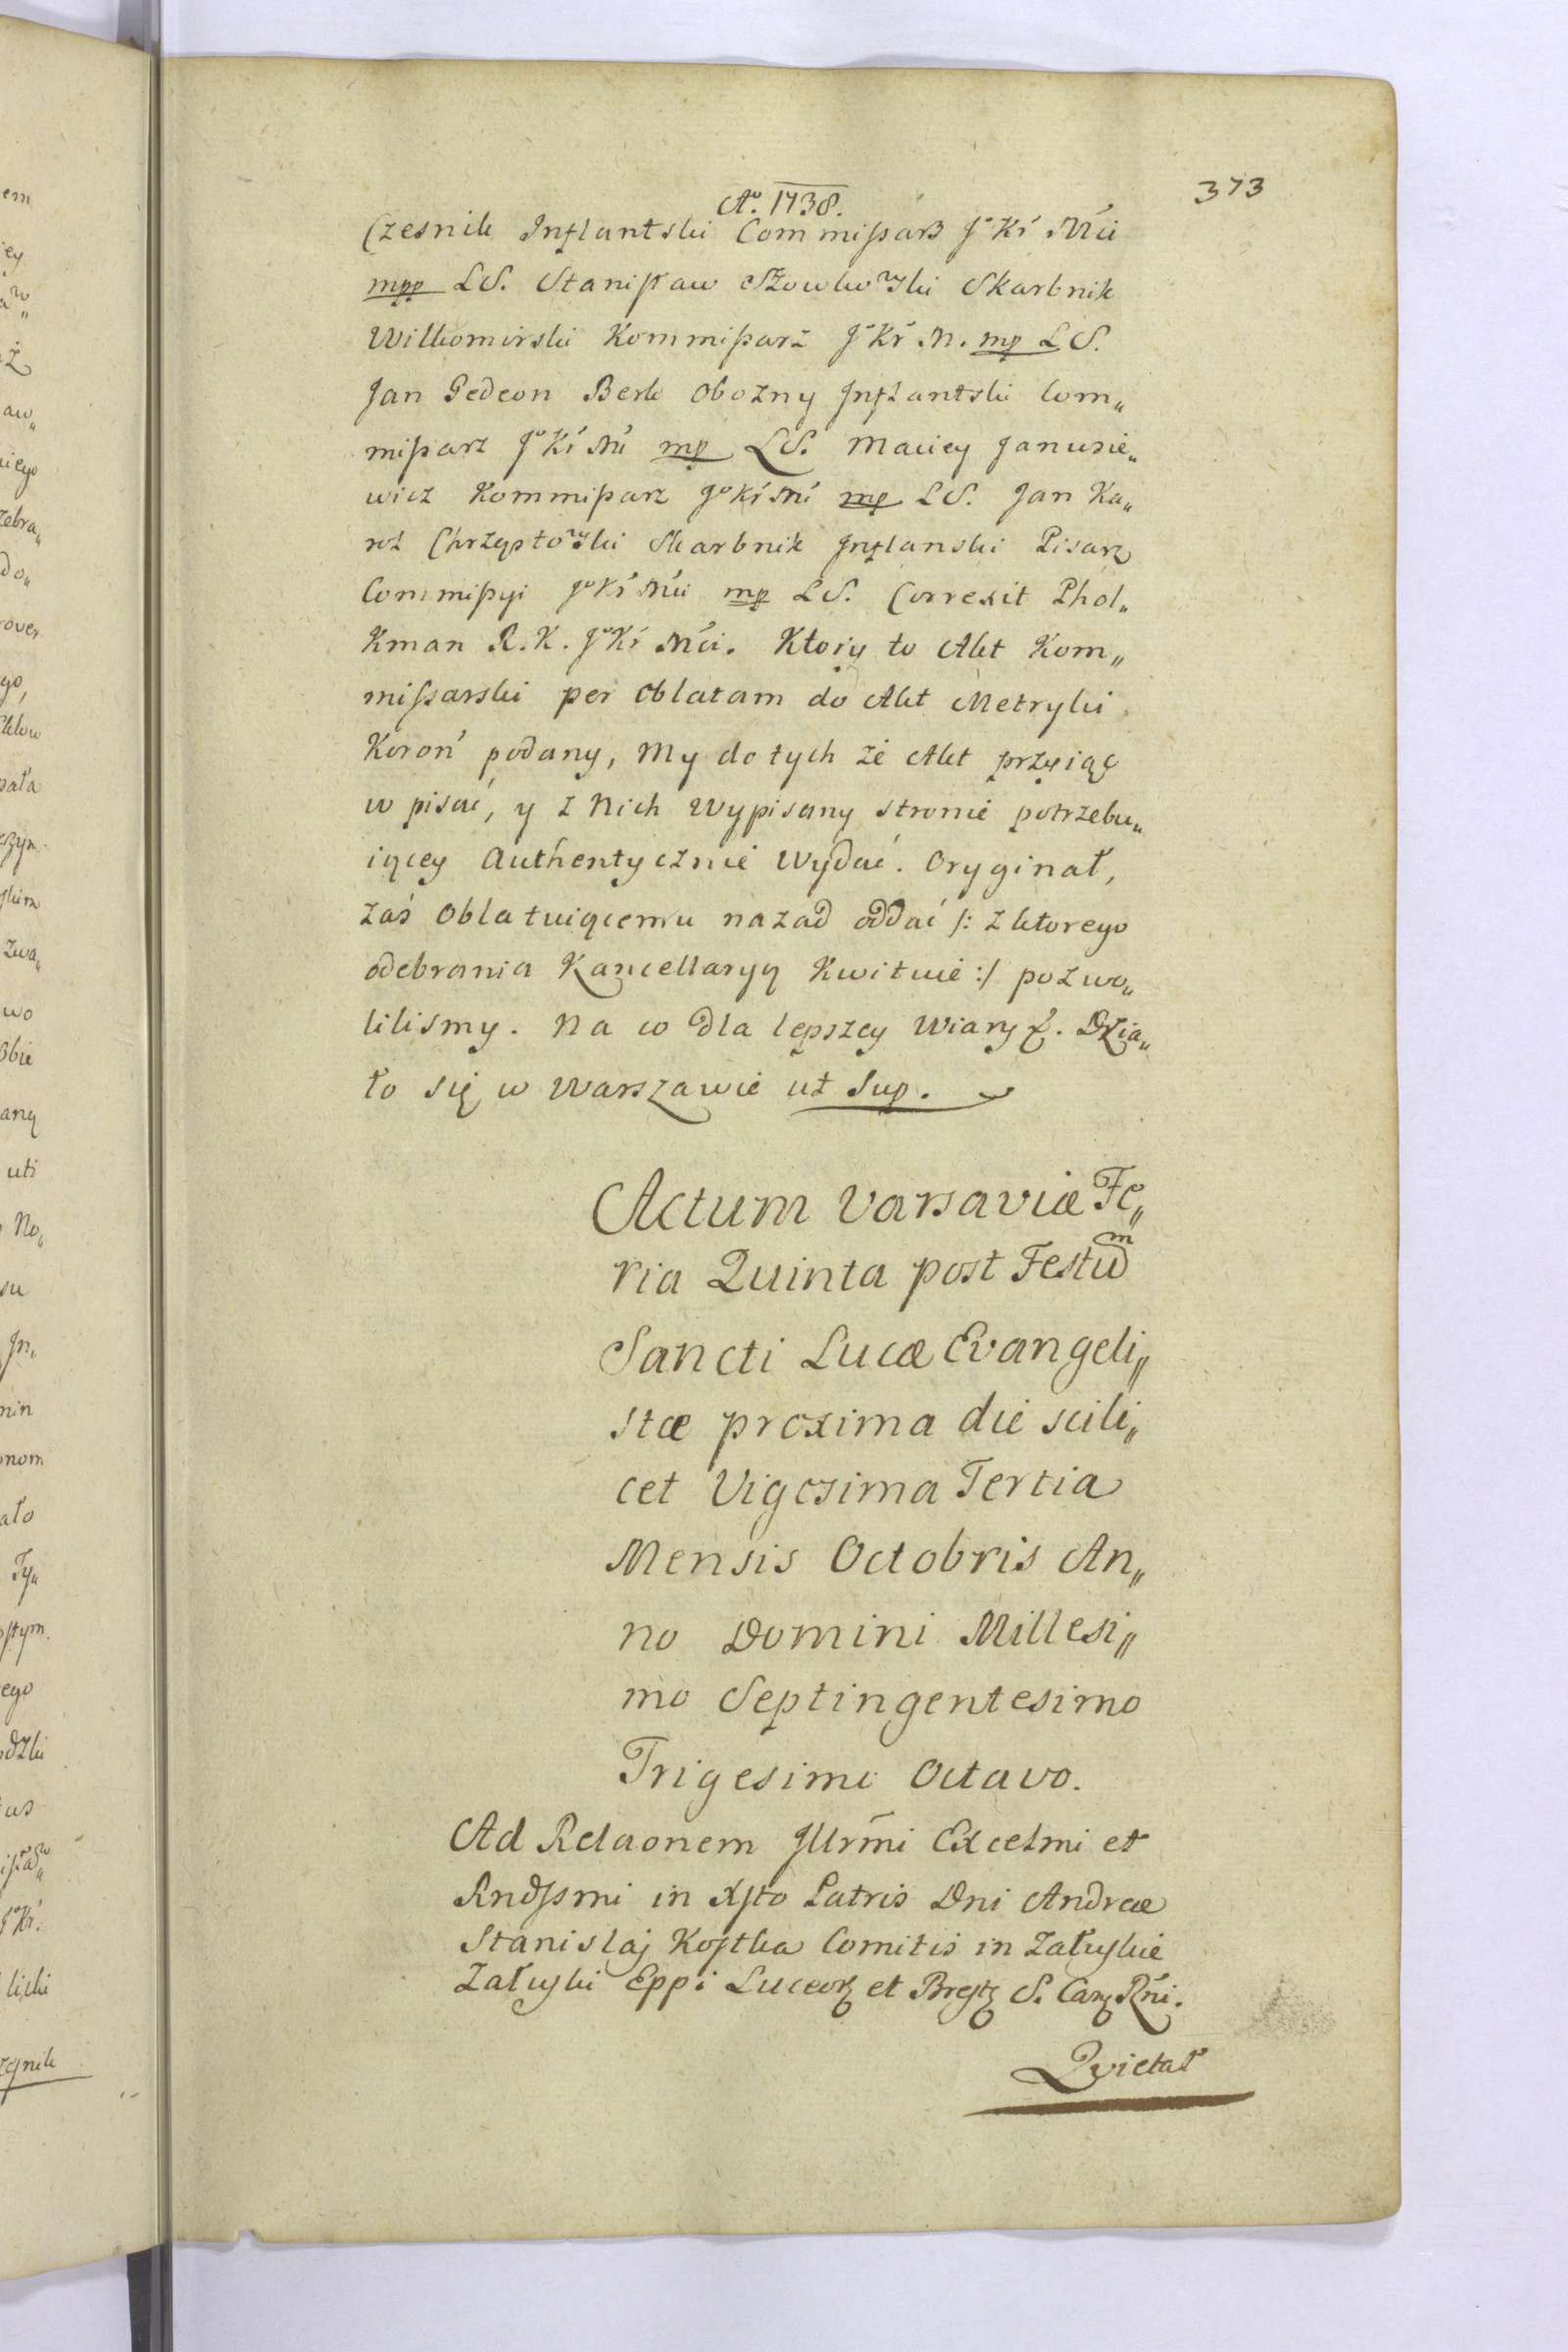 373
Aº. 1738.
Czesnik Inflantski Commißarz Jº Kr Mći
mpp LS. Stanisław Szowkowski Skarbnik
Wilkomirski Kommißarz Jº Kr M. mp LS.
Jan Gedeon Berk Obozny Inflantski Com„
mißarz Jº Kr Mci mp LS. Maciey Janusie„
wicz Kommißarz Jº Kr Mci mp LS. Jan Ka„
rol Chrząstowski Skarbnik Inflanski Pisarz
Commißyi Jº Kr Mći mp LS. Correxit Phol„
Kman R. K. Jº Kr Mći. Ktory to Akt Kom„
mißarski per Oblatam do Akt Metryki
Koroń podany, My do tych że Akt przyiąć
w pisać, y z Nich Wypisany stronie potrzebu„
iącey Authentycznie Wydać. Oryginał,
zaś Oblatuiącemu nazad oddać /: z ktorego
odebrania Kancellaryą Kwituie :/ pozwo„
liliśmy. Na co dla lepszey Wiary &. Dzia„
ło się w Warszawie ut Sup.
Actum Varsaviæ Fe„
ria Quinta post Festum
Sancti Lucæ Evangeli„
stæ proxima die scili„
cet Vigesima Tertia
Mensis Octobris An„
no Domini Millesi„
mo Septingentesimo
Trigesimo Octavo.
Ad Relaonem Illrmi Excelmi et
Rndssmi in Xsto Patris Dni Andreæ
Stanislaj Kostka Comitis in Załuskie
Załuski Eppi Luceor et Brest S. Canc Rni.
Quietat